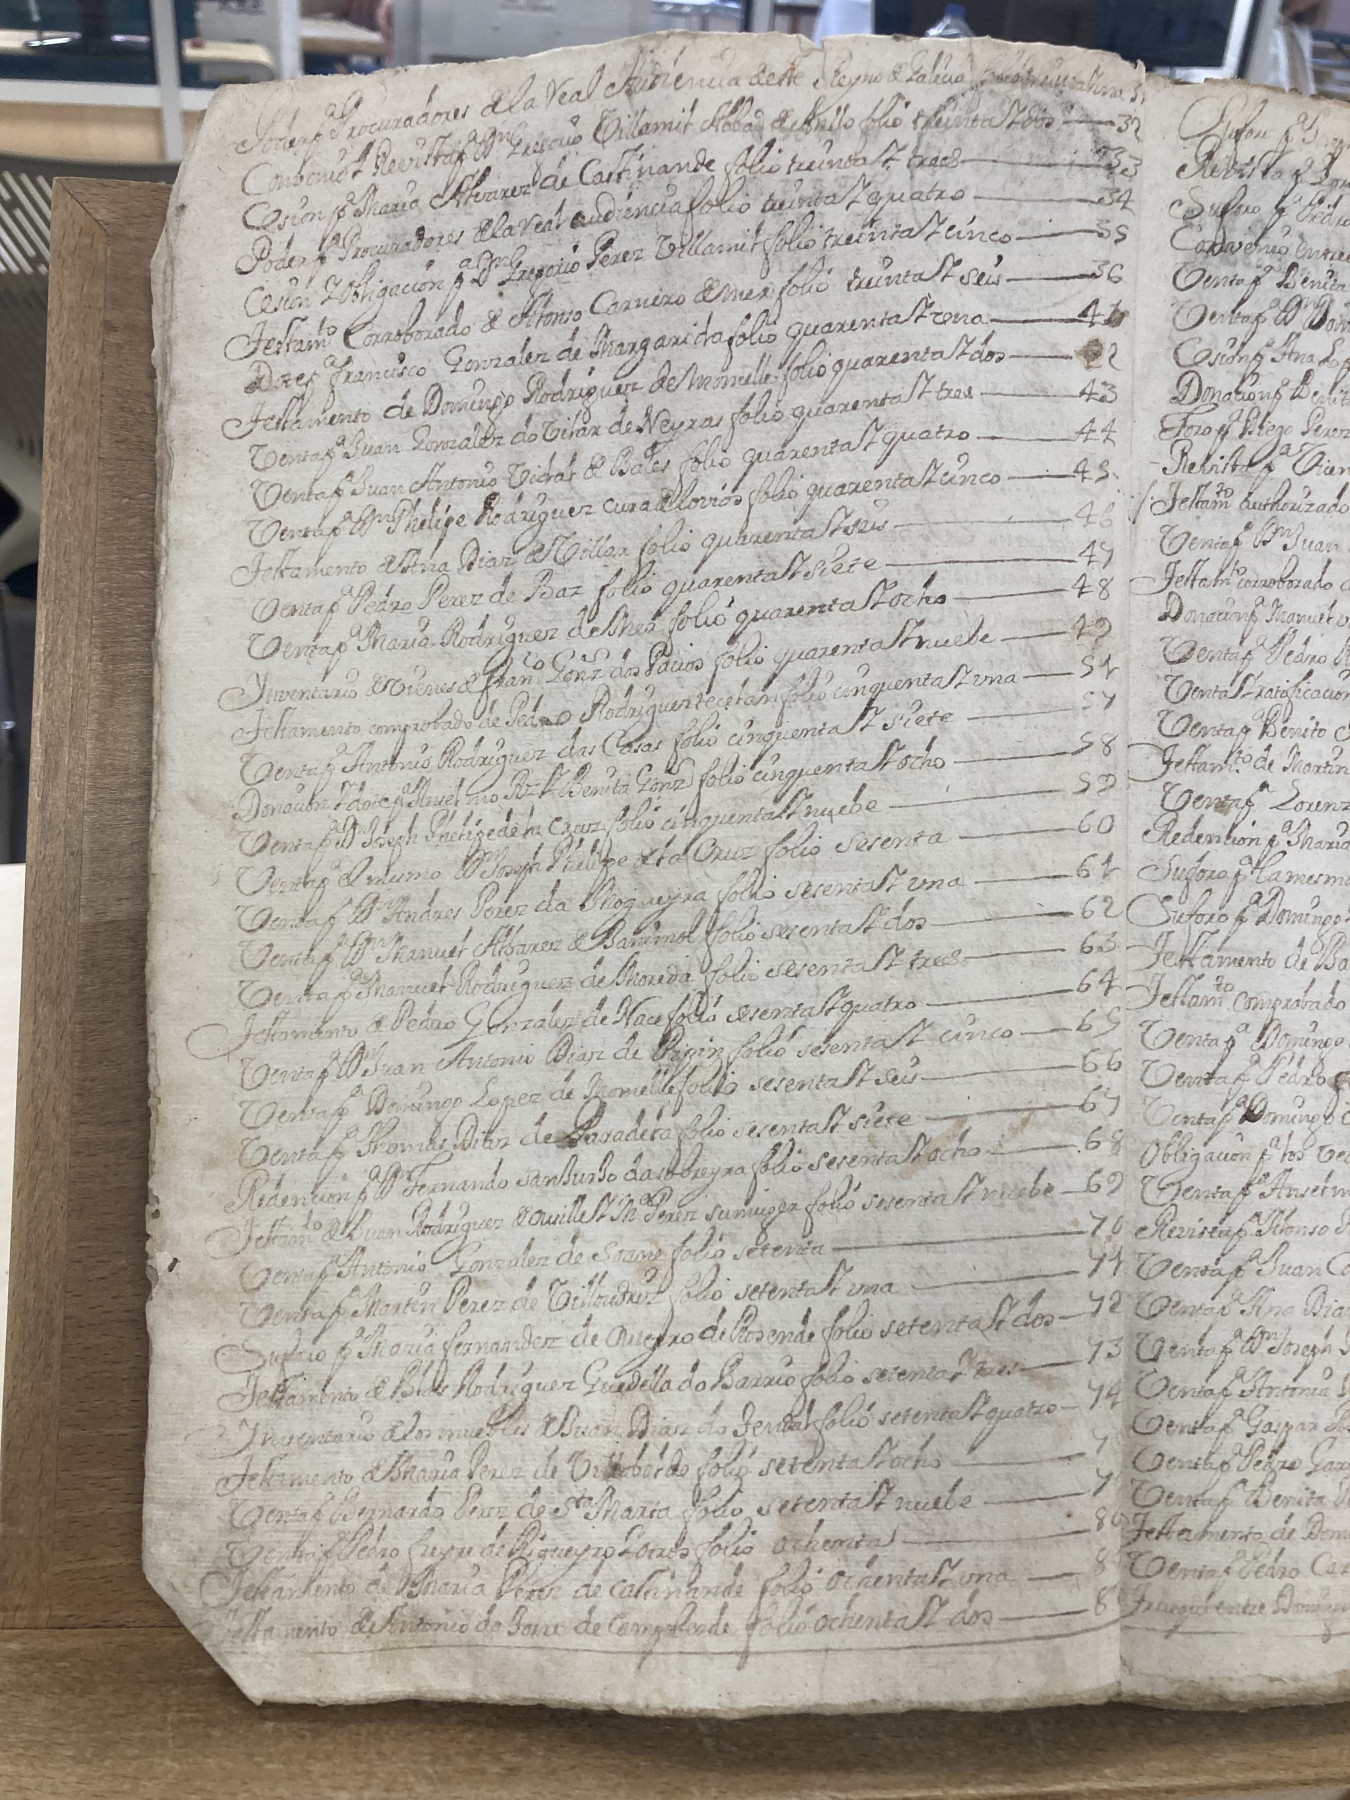 Poder pª Procuradores de la Real Audiencia deste Reyno de Galicia folio treinta st una 31
Conbenio st Revista pª Dn Gregorio Villamil Abbad de folio treinta st dos 32
Cesion pª Maria Albarez de Castinande folio treinta st tres 33
Poder pª Procuradores de la Real audiencia folio treinta st quatro 34
Cesion y obligacion pª Dn Gregorio Perez Villamil folio treinta st cinco 35
Testamto Corroborado de Alfonso Carneiro de mer folio treinta st seis 36
Dote pª Francisco Gonzalez de Margarida folio quarenta st una 41
Testamento de Domingo Rodriguez de Momelle folio quarenta st dos 42
Venta pª Juan Gonzalez do Vilar de Neyras folio quarenta st tres 43
Venta pª Juan Antonio de folio quarenta st quatro 44
Venta pª Dn Phelipe Rodriguez cura de lovios folio quarenta st cinco 45
Testamento de Ana Diaz de Villar folio quarenta st seis 46
Venta pª Pedro Perez de Baz folio quarenta st siete 47
Venta pª Maria Rodriguez de folio quarenta st ocho 48
Inventario de Vienes de Franco Gonz dos Pacios folio quarenta st nuebe 49
Testamento comprobado de Pedro Rodriguez folio cinquenta st una 51
Venta pª Antonio Rodriguez das Casas folio cinquenta st siete 57
Donacion y dote pª Anselmo Rz st Benita Gonz folio cinquenta st ocho 58
Venta pª Dn Joseph Phelipe de la Cruz folio cinquenta st nuebe 59
Venta pª el mismo Dn Joseph Phelipe de la Cruz folio sesenta 60
Venta pª Dn Andres Perez da Nogueyra folio sesenta st una 61
Venta pª Dn Manuel Albarez de folio sesenta st dos 62
Venta pª Manuel Rodriguez de Moreda folio sesenta st tres 63
Testamento de Pedro Gonzalez de Nace folio sesenta st quatro 64
Venta pª Dn Juan Antonio Diaz de Pigin folio sesenta st cinco 65
Venta pª Domingo Lopez de Momelle folio sesenta st seis 66
Venta pª Thomas Diaz de Paradela folio sesenta st siete 67
Redencion pª Dn Fernando Sanhurho da sobreyra folio sesenta st ocho 68
Testamto de Juan Rodriguez de st Mª Perez su muger folio sesenta st nuebe 69
Venta pª Antonio Gonzalez de folio setenta 70
Venta pª Martin Perez de folio setenta st una 71
Suforo pª Maria fernandez de Outeyro de Rosende folio setenta st dos 72
Testamento de Blas Rodriguez Guedella do Barrio folio setenta st tres 73
Inventario de los muebles de Juan Diaz do folio setenta st quatro 74
Testamento de Maria Perez de folio setenta st ocho 7
Venta pª Bernardo Perez de Sta Maria folio setenta st nuebe 7
Venta pª Pedro freyre de Figueyra y otros folio ochenta 80
Testamento de Maria Perez de Castinande folio ochenta st una 8
Testamento de Antonio do Torre de Campoverde folio ochenta st dos 8
Suforo pª
Revista pª
Suforo pª Pedro
Convenio entre
Venta pª Benita
Venta pª Dn Dom
Cesion pª Ana Lop
Donacion pª Benit
Foro pª Diego Perez
Revista pª Vicen
Testamto authorizado
Venta pª Dn Juan
Testamto corroborado
Donacion pª Manuel
Venta pª Pedro
Venta st ratificacion
Venta pª Benito
Testamto de Martin
Venta pª Lorenz
Redencion pª Maria
Suforo pª la mesma
Suforo pª Domingo
Testamento de Ba
Testamto comprobado
Venta pª Domingo
Venta pª Pedro
Venta pª Domingo
Obligacion pª los vec
Venta pª Anselm
Revista pª Alfonso
Venta pª Juan Co
Venta pª Ana Dia
Venta pª Dn Joseph
Venta pª Antonia
Venta pª Gaspar
Venta pª Pedro Gar
Venta pª Benita
Testamento de Dom
Venta pª Pedro Car
entre Domin